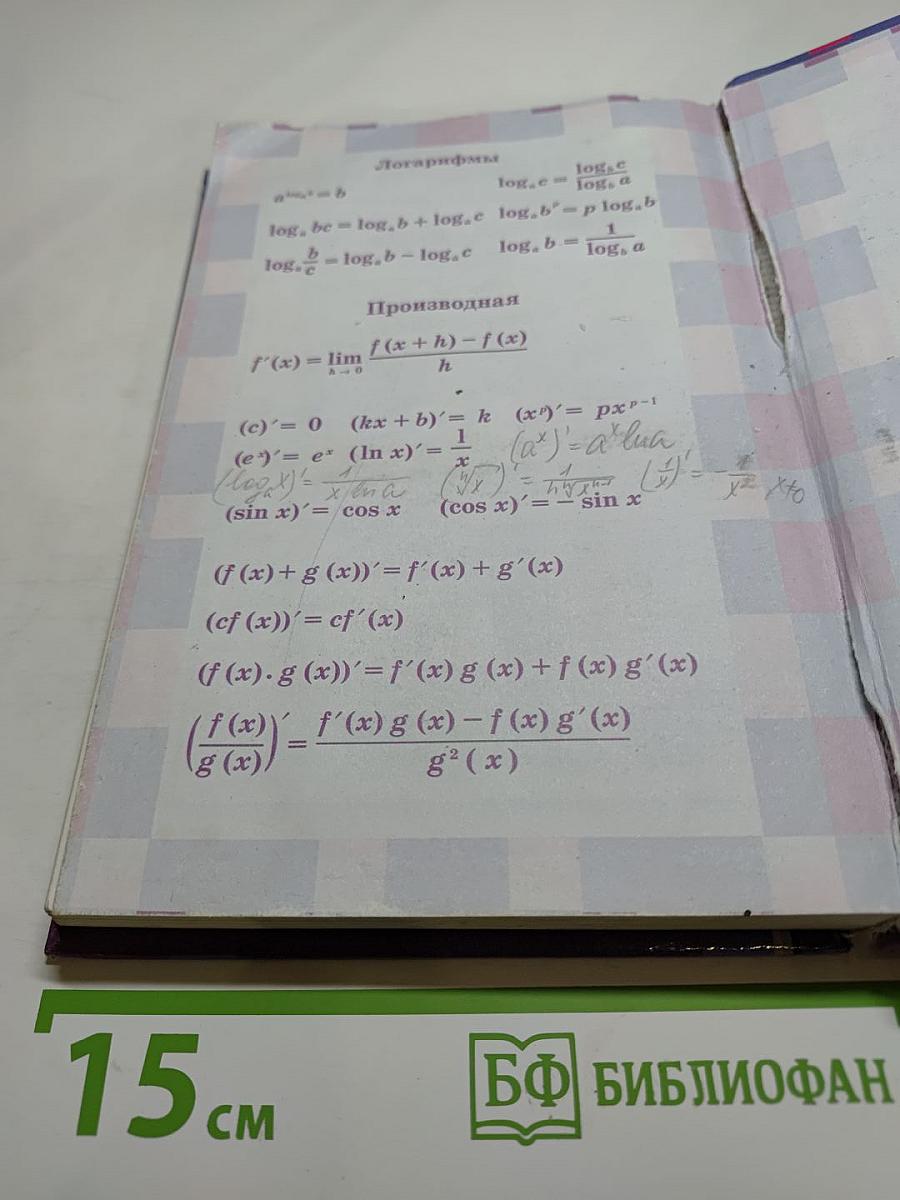 Логарифмы
a^{log_a b} = b log_a c = \frac{log_b c}{log_b a}
log_a bc = log_a b + log_a c log_a b^p = p log_a b
log_a \frac{b}{c} = log_a b − log_a c log_a b = \frac{1}{log_b a}
Производная
f′(x) = lim_{h→0} \frac{f(x + h) − f(x)}{h}
(c)′ = 0 (kx + b)′ = k (x^p)′ = px^{p−1}
(e^x)′ = e^x (ln x)′ = \frac{1}{x} (a^x)′ = a^x ln a
(log_a x)′ = \frac{1}{x ln a} (\sqrt[n]{x})′ = \frac{1}{n\sqrt[n]{x^{n-1}}} (\frac{1}{x})′ = −\frac{1}{x^2} x≠0
(sin x)′ = cos x (cos x)′ = − sin x
(f(x) + g(x))′ = f′(x) + g′(x)
(cf(x))′ = cf′(x)
(f(x) · g(x))′ = f′(x) g(x) + f(x) g′(x)
(\frac{f(x)}{g(x)})′ = \frac{f′(x) g(x) − f(x) g′(x)}{g^2(x)}
15 см
БФ БИБЛИОФАН